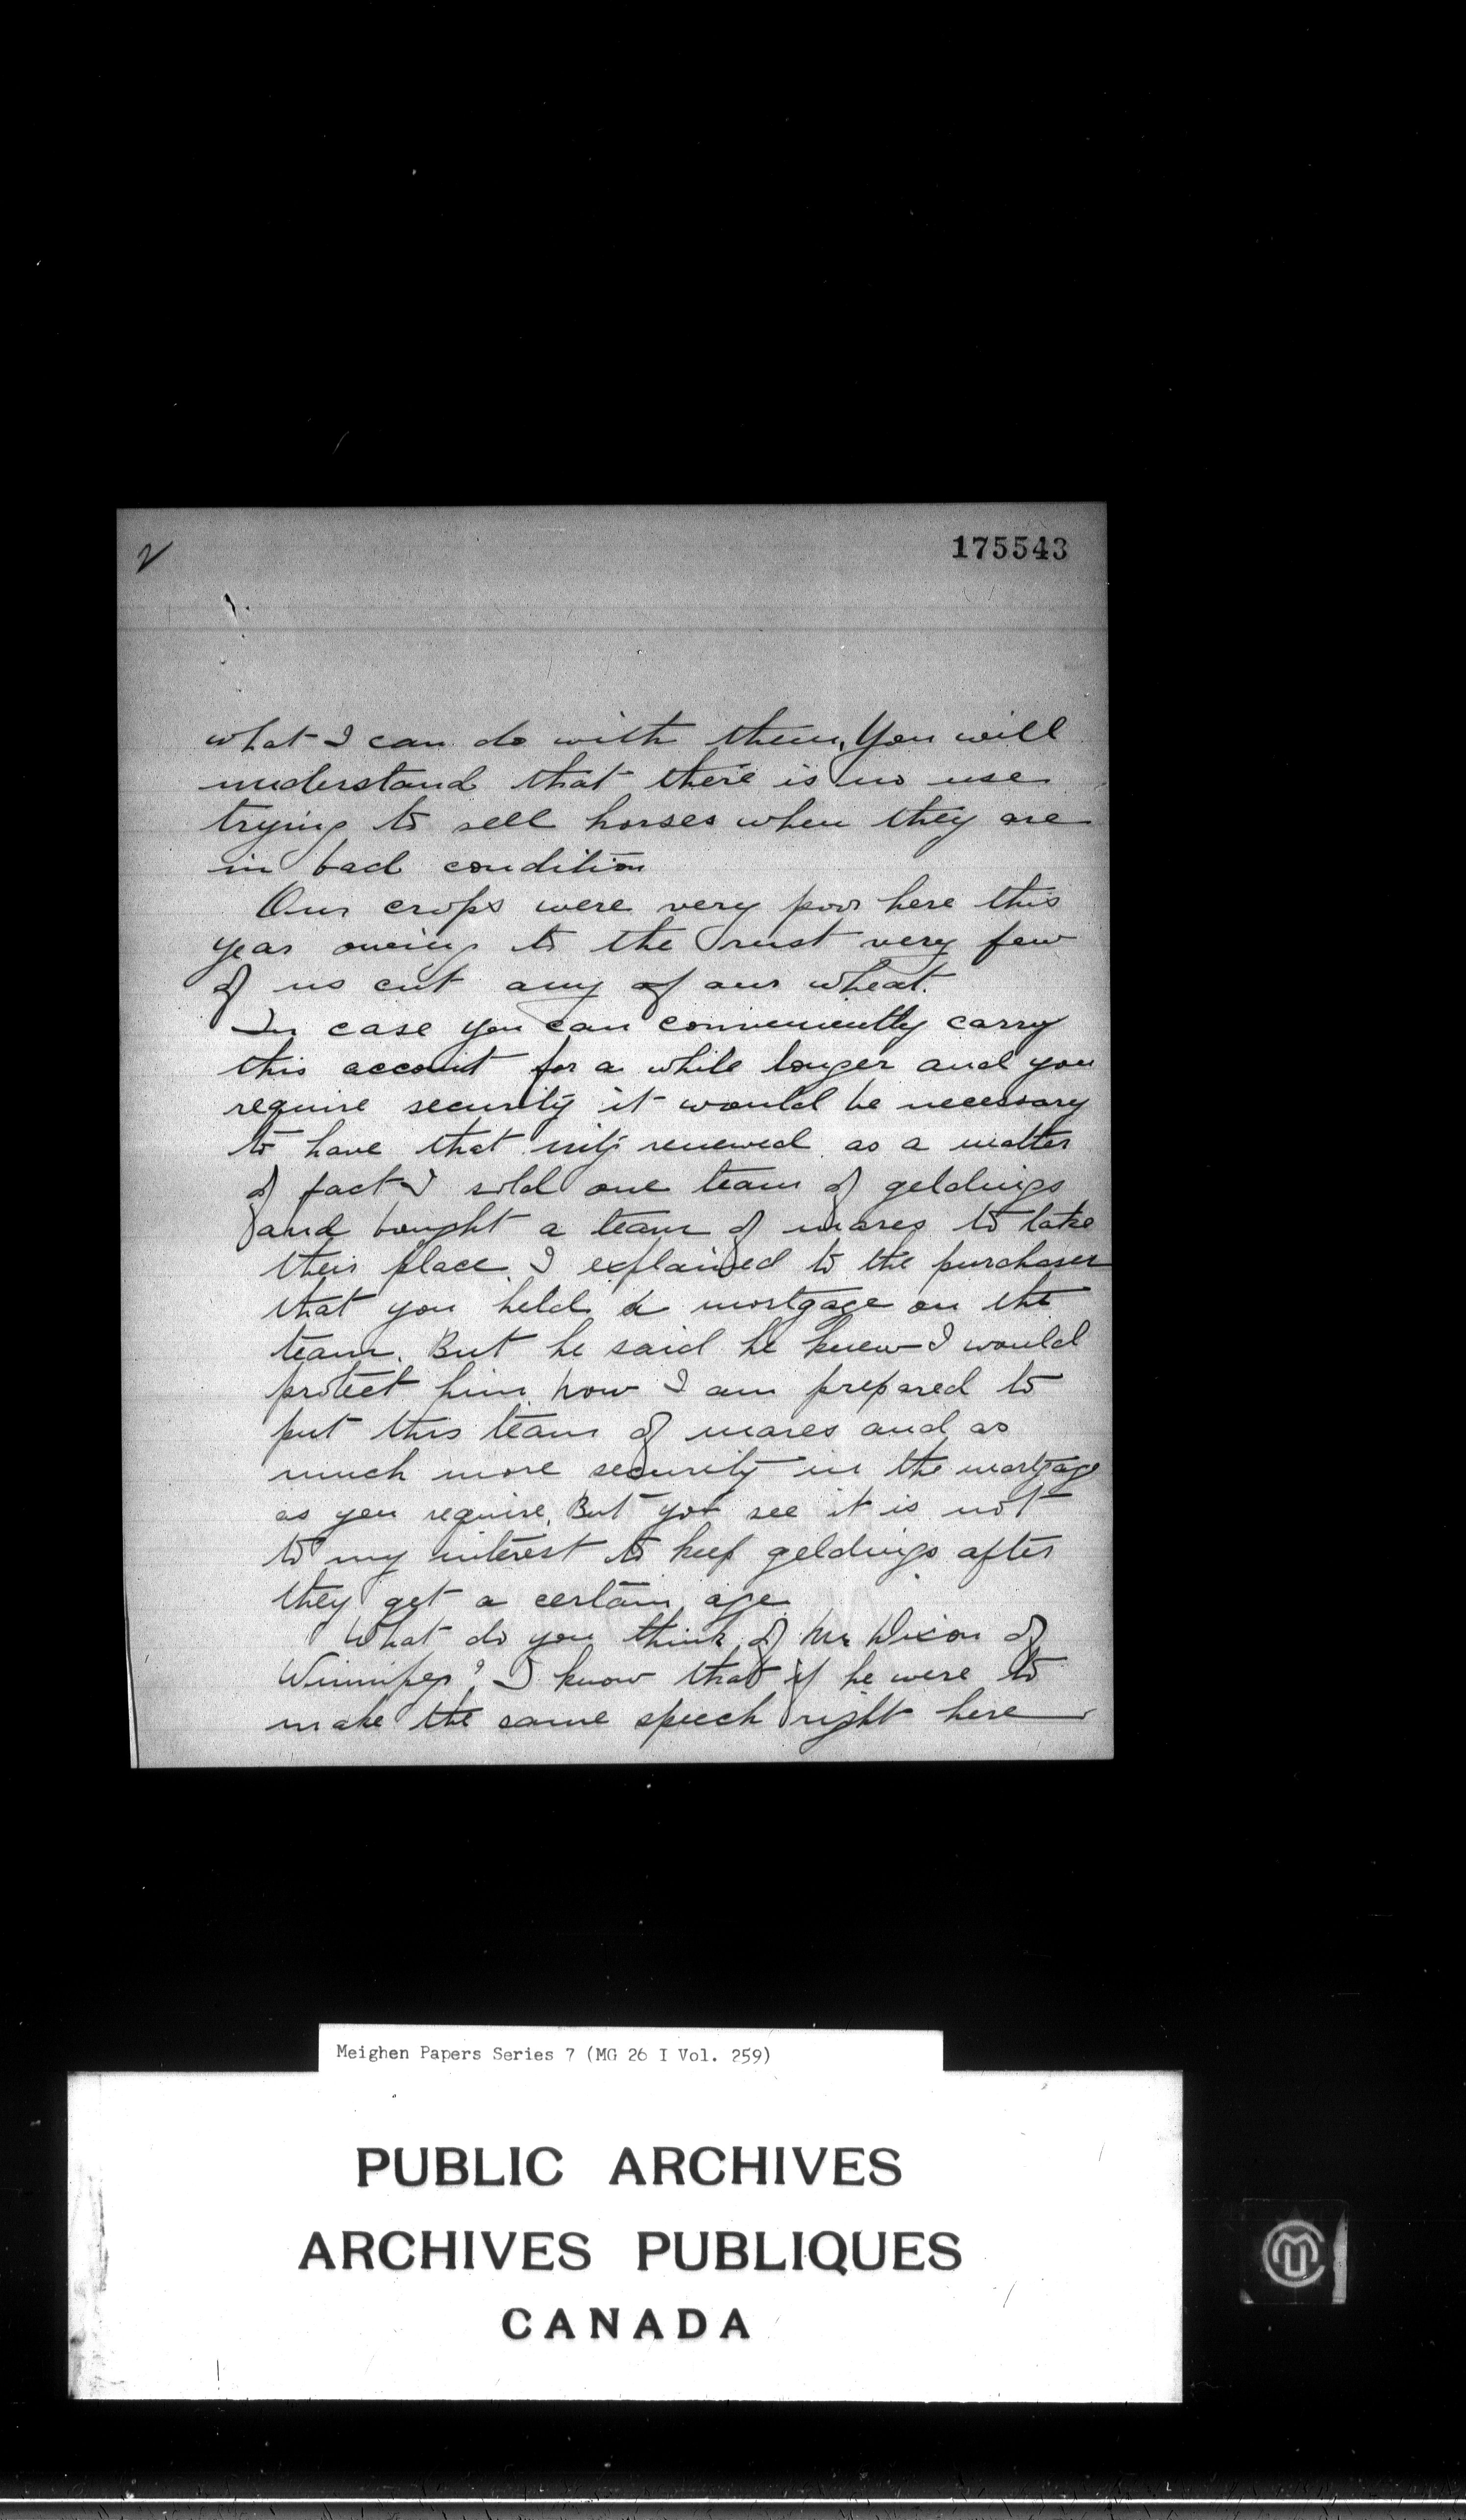 2
175543
what I can do with them, You will
understand that there is no use
trying to sell horses when they are
in bad condition
Our crops were very poor here this
year owing to the rust very few
of us cut any of our wheat.
In case you can conveniently carry
this account for a while longer and you
require security it would be necessary
to have that mtg renewed. as a matter
of fact I sold one team of geldings
and bought a team of mares to take
their place. I explained to the purchaser
that you held a mortgage on the
team. But he said he knew I would
protect him now I am prepared to
put this team of mares and as
much more security in the mortgage
as you require. But you see it is not
to my interest to keep geldings after
they get a certain age.
What do you think of Mr Dixon of
Winnipeg? I know that if he were to
make the same speech right here
Meighen Papers Series 7 (MG 26 I Vol. 259)
PUBLIC ARCHIVES
ARCHIVES PUBLIQUES
CANADA